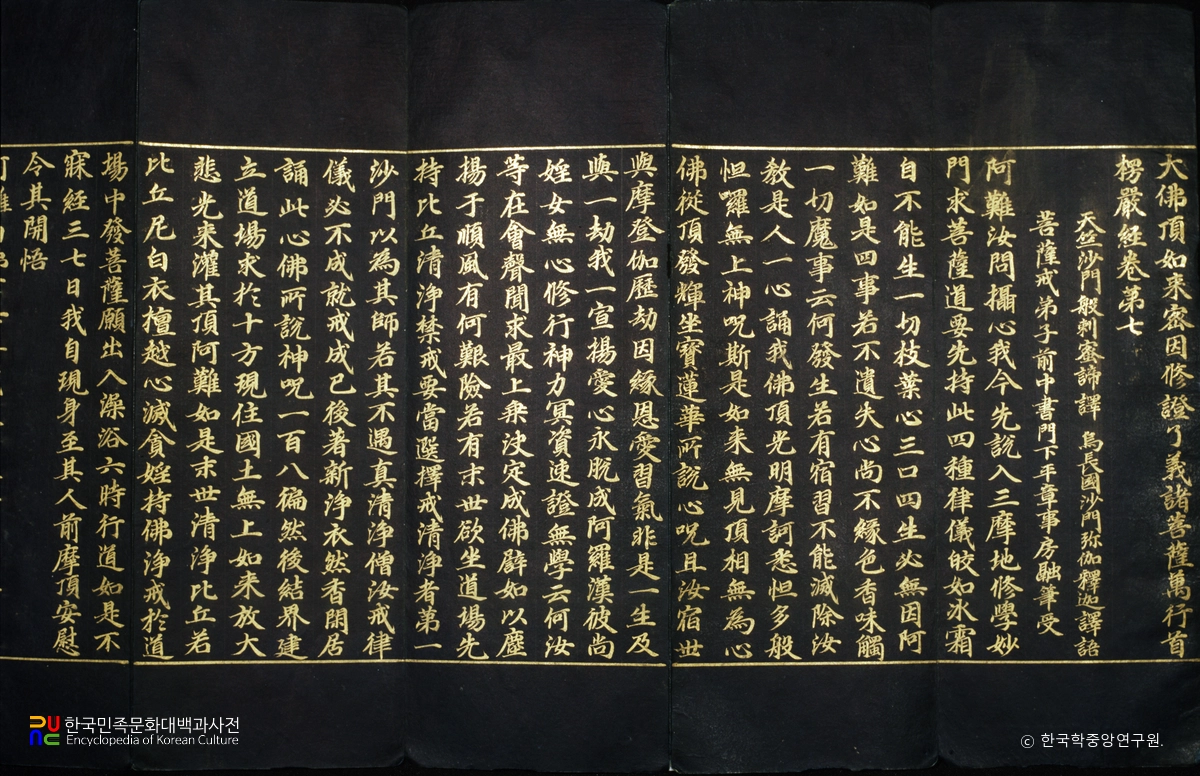 大佛頂如來密因修證了義諸菩薩萬行首
楞嚴經卷第七
天竺沙門般剌密諦譯 烏長國沙門弥伽釋迦譯語
菩薩戒弟子前中書門下平章事房融筆受
阿難汝問攝心我今先說入三摩地修學妙
門求菩薩道要先持此四種律儀皎如冰霜
自不能生一切枝葉心三口四生必無因阿
難如是四事若不遺失心尚不緣色香味觸
一切魔事云何發生若有宿習不能滅除汝
教是人一心誦我佛頂光明摩訶悉怛多般
怛囉無上神呪斯是如來無見頂相無為心
佛從頂發輝坐寶蓮華所說心呪且汝宿世
與摩登伽歷劫因緣恩愛習氣非是一生及
與一劫我一宣揚愛心永脫成阿羅漢彼尚
婬女無心修行神力冥資速證無學云何汝
等在會聲聞求最上乘决定成佛辟如以塵
揚于順風有何艱險若有末世欲坐道場先
持比丘清淨禁戒要當選擇戒清淨者第一
沙門以為其師若其不遇真清淨僧汝戒律
儀必不成就戒成已後著新淨衣然香閑居
誦此心佛所說神呪一百八徧然後結界建
立道場求於十方現住國土無上如來放大
悲光來灌其頂阿難如是末世清淨比丘若
比丘尼白衣檀越心滅貪婬持佛淨戒於道
場中發菩薩願出入澡浴六時行道如是不
寐經三七日我自現身至其人前摩頂安慰
令其開悟
한국민족문화대백과사전
Encyclopedia of Korean Culture
ⓒ 한국학중앙연구원.